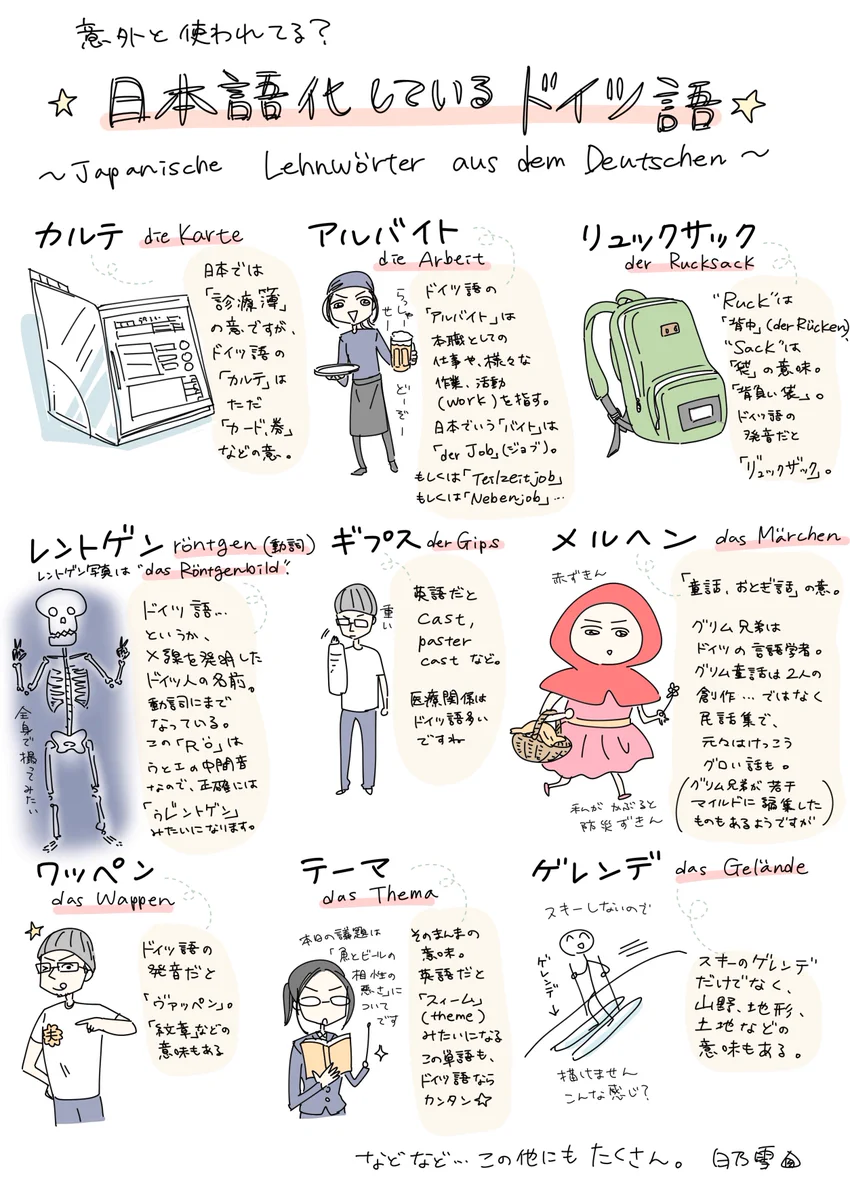 意外と使われてる?
日本語化しているドイツ語
~Japanische Lehnwörter aus dem Deutschen~
カルテ die Karte
日本では
「診療簿」
の意ですが、
ドイツ語の
「カルテ」は
ただ
「カード、巻」
などの意。
アルバイト
die Arbeit
らっしゃー
せー
どーぞー
ドイツ語の
「アルバイト」は
本職としての
仕事や、様々な
作業、活動
(work)を指す。
日本でいう「バイト」は
「der Job」(ジョブ)。
もしくは「Teilzeitjob」
もしくは「Nebenjob」…
リュックサック
der Rucksack
"Ruck"は
「背中」(der Rücken)、
"Sack"は
「袋」の意味。
「背負い袋」。
ドイツ語の
発音だと
「リュックザック」。
レントゲン röntgen (動詞)
レントゲン写真は"das Röntgenbild".
全身で撮ってみたい
ドイツ語…
というか、
X線を発明した
ドイツ人の名前。
動詞にまで
なっている。
この「Rö」は
ウとエの中間音
なので、正確には
「ゥレントゲン」
みたいになります。
ギプス der Gips
重い
英語だと
cast,
paster
cast など。
医療関係は
ドイツ語多い
ですね
メルヘン das Märchen
赤ずきん
「童話、おとぎ話」の意。
グリム兄弟は
ドイツの言語学者。
グリム童話は2人の
創作…ではなく
民話集で、
元々はけっこう
グロい話も。
(グリム兄弟が若干
マイルドに編集した
ものもあるようですが)
私がかぶると
防災ずきん
ワッペン
das Wappen
ドイツ語の
発音だと
「ヴァッペン」。
「紋章」などの
意味もある
テーマ
das Thema
本日の議題は
「魚とビールの
相性の
悪さ」に
ついて
です
そのまんまの
意味。
英語だと
「スィーム」
(theme)
みたいになる
この単語も、
ドイツ語なら
カンタン☆
ゲレンデ das Gelände
スキーしないので
ゲレンデ→
描けません
こんな感じ?
スキーのゲレンデ
だけでなく、
山野、地形、
土地などの
意味もある。
などなど…この他にもたくさん。 白乃雪